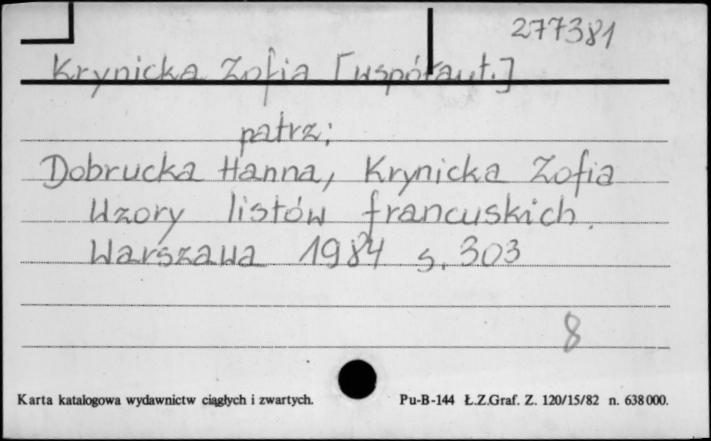 277381
Krynicka Zofia [współaut.]
patrz:
Dobrucka Hanna, Krynicka Zofia
Wzory listów francuskich.
Warszawa 1984 s. 303
8
Karta katalogowa wydawnictw ciągłych i zwartych. Pu-B-144 Ł.Z.Graf. Z. 120/15/82 n. 638000.